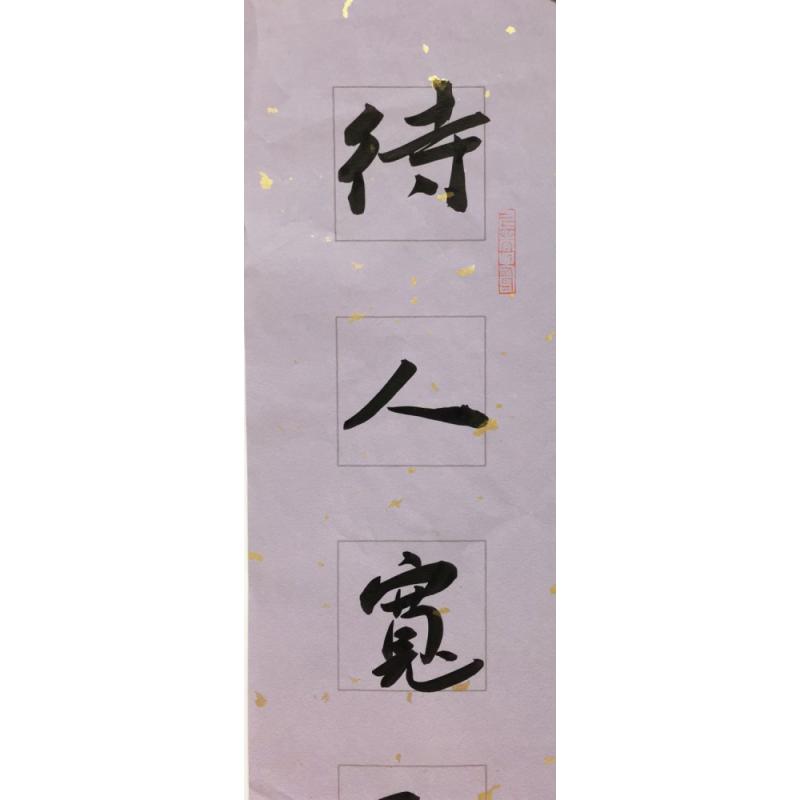 待人寬